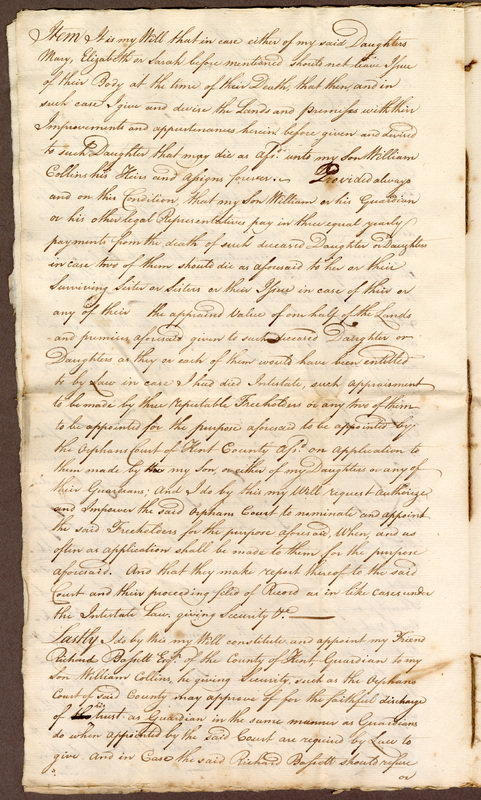 Item It is my Will that in case either of my said Daughters
Mary, Elizabeth or Sarah before mentioned should not leave Issue
of their Body at the time of their Death, that then, and in
such case I give and devise the Lands and premises with their
Improvements and appurtenances herein before given and devised
to such Daughter that may die as afsd. unto my Son William
Collins his Heirs and assigns forever. Provided always
and on this Condition, that my Son William or his Guardian
or his other legal Representatives pay in three equal yearly
payments from the death of such deceased Daughter or Daughters
in case two of them should die as aforesaid to her or their
Surviving Sister or Sisters or their Issue in case of their or
any of their the appraised Value of one half of the Lands
and premises aforesaid given to such deceased Daughter or
Daughters as they or each of them would have been entitled
to by Law in case I had died Intestate, such appraisment
to be made by three reputable Freeholders or any two of them
to be appointed for the purpose aforesaid to be appointed by
the Orphans Court of Kent County afsd. on application to
them made by my son, or either of my Daughters or any of
their Guardians; And I do by this my Will request Authorize
and Impower the said Orphans Court to nominate and appoint
the said Freeholders for the purpose aforesaid, When, and as
often as application shall be made to them for the purpose
aforesaid. And that they make report thereof to the said
Court and their proceeding filed of Record as in like cases under
the Intestate Law, giving Security &c.
Lastly I do by this my Will constitute and appoint my Friend
Richard Bassett Esqr. of the County of Kent Guardian to my
Son William Collins, he giving Security, such as the Orphans
Court of said County may approve off for the faithful discharge
of his trust as Guardian in the same manner as Guardians
do when appointed by the said Court are required by Law to
give. And in Case the said Richard Bassett should refuse
or